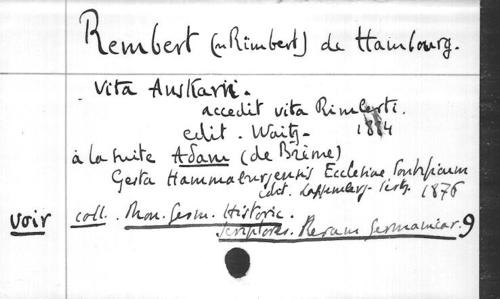 Rembert (ou Rimbert) de Hambourg.
Vita Anskarii.
accedit vita Rimberti.
edit. Waitz. 1884
à la suite Adam (de Brême)
Gesta Hammaburgensis Ecclesiae Pontificum
edit. Lappenberg - Pertz. 1876
voir coll. Mon. Germ. Historic.
Scriptores. Rerum Germanicar. 9